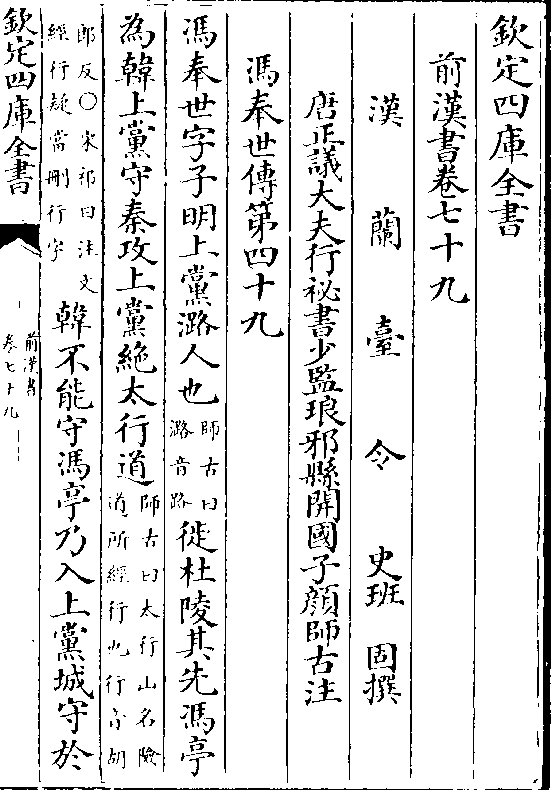 欽定四庫全書
前漢書卷七十九
漢蘭臺令史班固撰
唐正議大夫行祕書少監琅邪縣開國子顔師古注
馮奉世傳第四十九
馮奉世字子明上黨潞人也師古曰潞音路徙杜陵其先馮亭
為韓上黨守秦攻上黨絶太行道師古曰太行山名險道所經行也行音胡
郎反○宋祁曰注文經行疑當刪行字韓不能守馮亭乃入上黨城守於
欽定四庫全書
前漢書
卷七十九
一